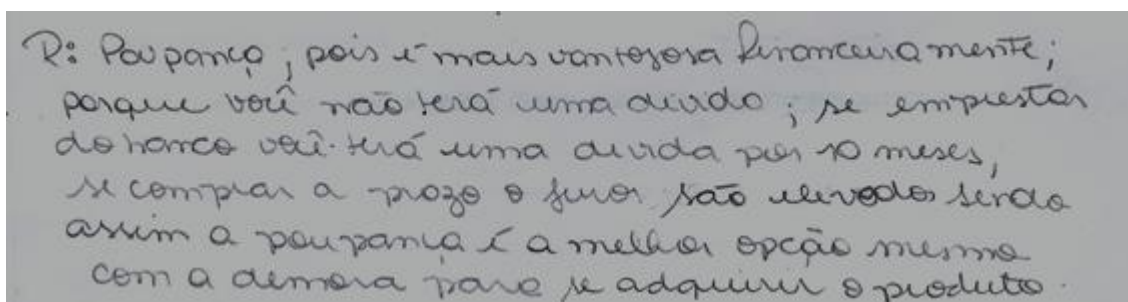 R: Poupança, pois é mais vantajosa financeiramente;
porque você não terá uma divida; se emprestar
do banco você terá uma divida por 10 meses,
se comprar a prazo o juros são elevados sendo
assim a poupança é a melhor opção mesmo
com a demora para se adquirir o produto.